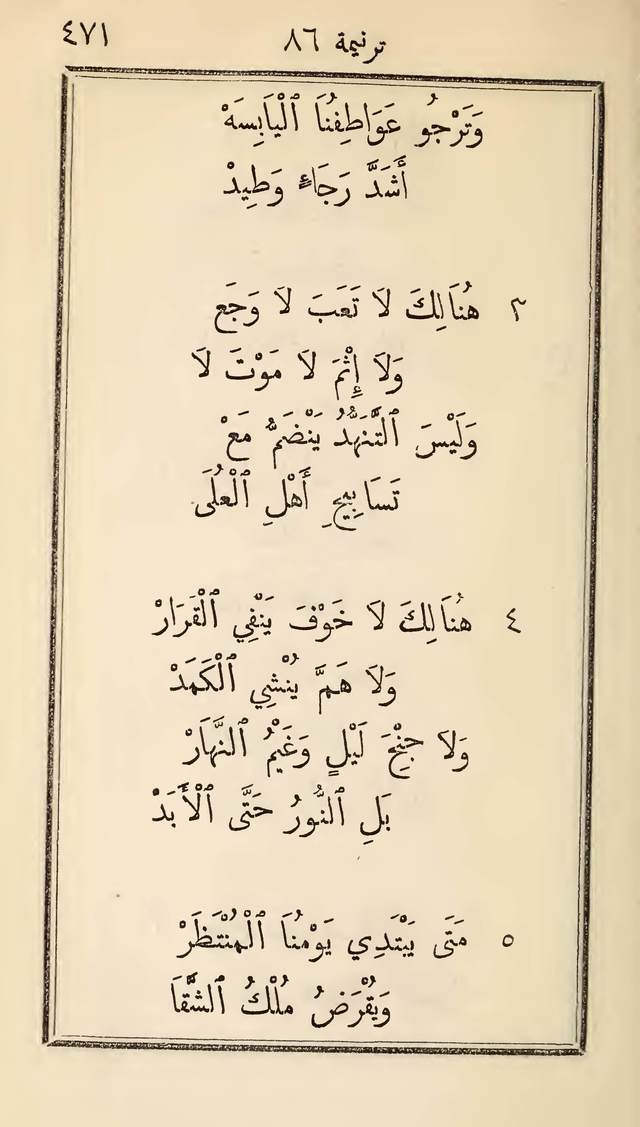 ترنيمة ٨٦ ٤٧١
وَتَرْجُو عَوَاطِفُنَا ٱلْيَابِسَهْ
أَشَدَّ رَجَاءٍ وَطِيدْ
٣ هُنَالِكَ لَا تَعَبَ لَا وَجَع
وَلَا إِثْمَ لَا مَوْتَ لَا
وَلَيْسَ ٱلتَّنَهُّدُ يَنْضَمُّ مَعْ
تَسَابِيحِ أَهْلِ ٱلْعُلَى
٤ هُنَالِكَ لَا خَوْفَ يَنْفِي ٱلْقَرَارْ
وَلَا هَمَّ يُنْشِي ٱلْكَمَدْ
وَلَا جِنْحَ لَيْلٍ وَغَيْمُ ٱلنَّهَارْ
بَلِ ٱلنُّورُ حَتَّى ٱلْأَبَدْ
٥ مَتَى يَبْتَدِي يَوْمُنَا ٱلْمُنْتَظَرْ
وَيُقْرَضُ مُلْكُ ٱلشَّقَا